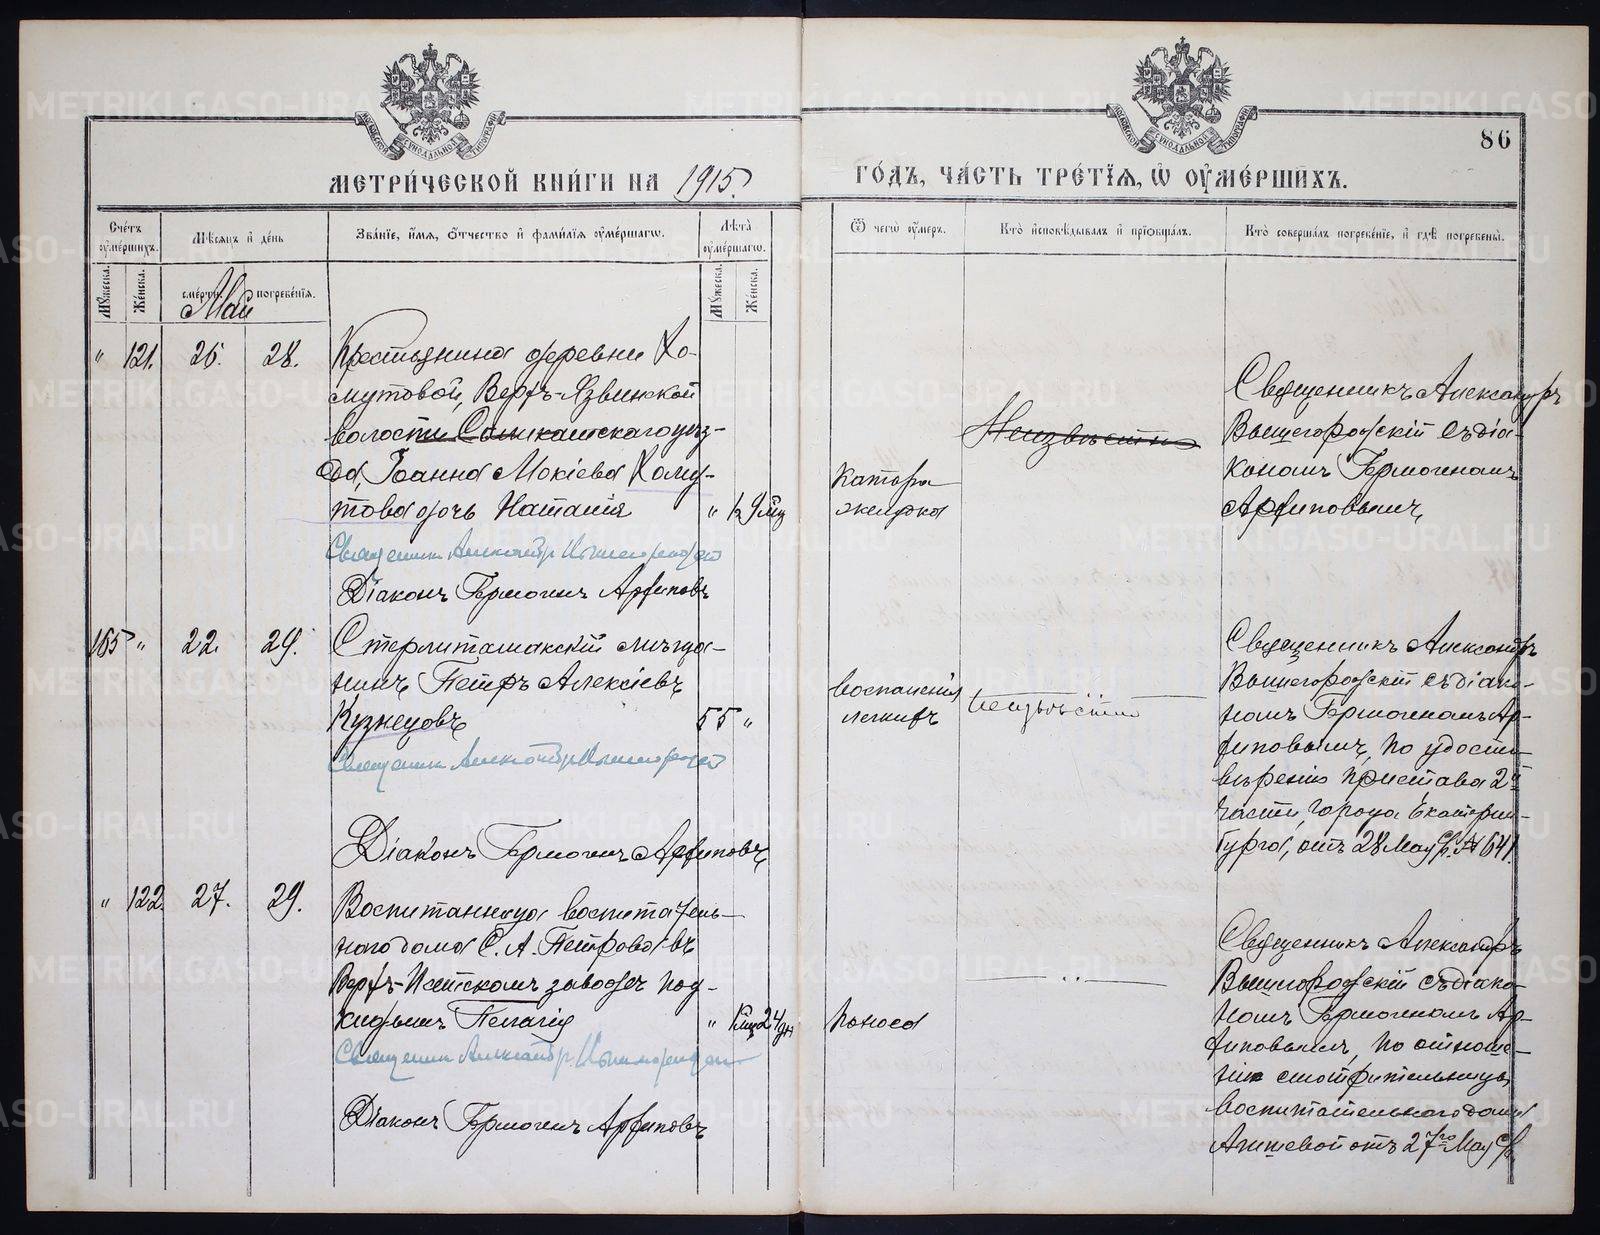 86
МЕТРИЧЕСКОЙ КНИГИ НА 1915 ГОДЪ, ЧАСТЬ ТРЕТІЯ, Ѿ ОУМЕРШИХЪ.
Счетъ оумершихъ.
Мѣсяцъ и день
Званіе, имя, отчество и фамилія оумершагѡ.
Лѣта оумершагѡ.
Ѿ чегѡ оумеръ.
Кто исповѣдывалъ и пріобщалъ.
Кто совершалъ погребеніе, и гдѣ погребены.
Мужеска.
Женска.
смерти.
погребенія.
Мужеска.
Женска.
Май
" 121. 26. 28.
Крестьянина деревни Хо-
мутовой, Верхъ-Язвинской
волости Соликамскаго уѣз-
да, Іоанна Мокіева Хому-
това дочь Наталія
Священникъ Александръ Вышегородскій
Діаконъ Гермогенъ Архиповъ
Катара
желудка
Неизвѣстно
Священникъ Александръ
Вышегородскій съ діа-
кономъ Гермогеномъ
Архиповымъ
165 " 22. 29.
Стерлитамакскій мѣща-
нинъ Петръ Алексіевъ
Кузнецовъ
55 "
Священникъ Александръ Вышегородскій
Діаконъ Гермогенъ Архиповъ
воспаленія
легкихъ
Неизвѣстно
Священникъ Александръ
Вышегородскій съ діако-
номъ Гермогеномъ Ар-
хиповымъ, по удосто-
вѣренію пристава 2й
части, города Екатерин-
бурга, отъ 28 Мая № 641
" 122. 27. 29.
Воспитанница воспитатель-
наго дома С. А. Петрова въ
Верхъ-Исетскомъ заводѣ под-
кидышъ Пелагія
Священникъ Александръ Вышегородскій
Діаконъ Гермогенъ Архиповъ
поноса
Священникъ Александръ
Вышегородскій съ діако-
номъ Гермогеномъ Ар-
хиповымъ, по отноше-
нію смотрительницы
воспитательнаго дома
отъ 27го Мая